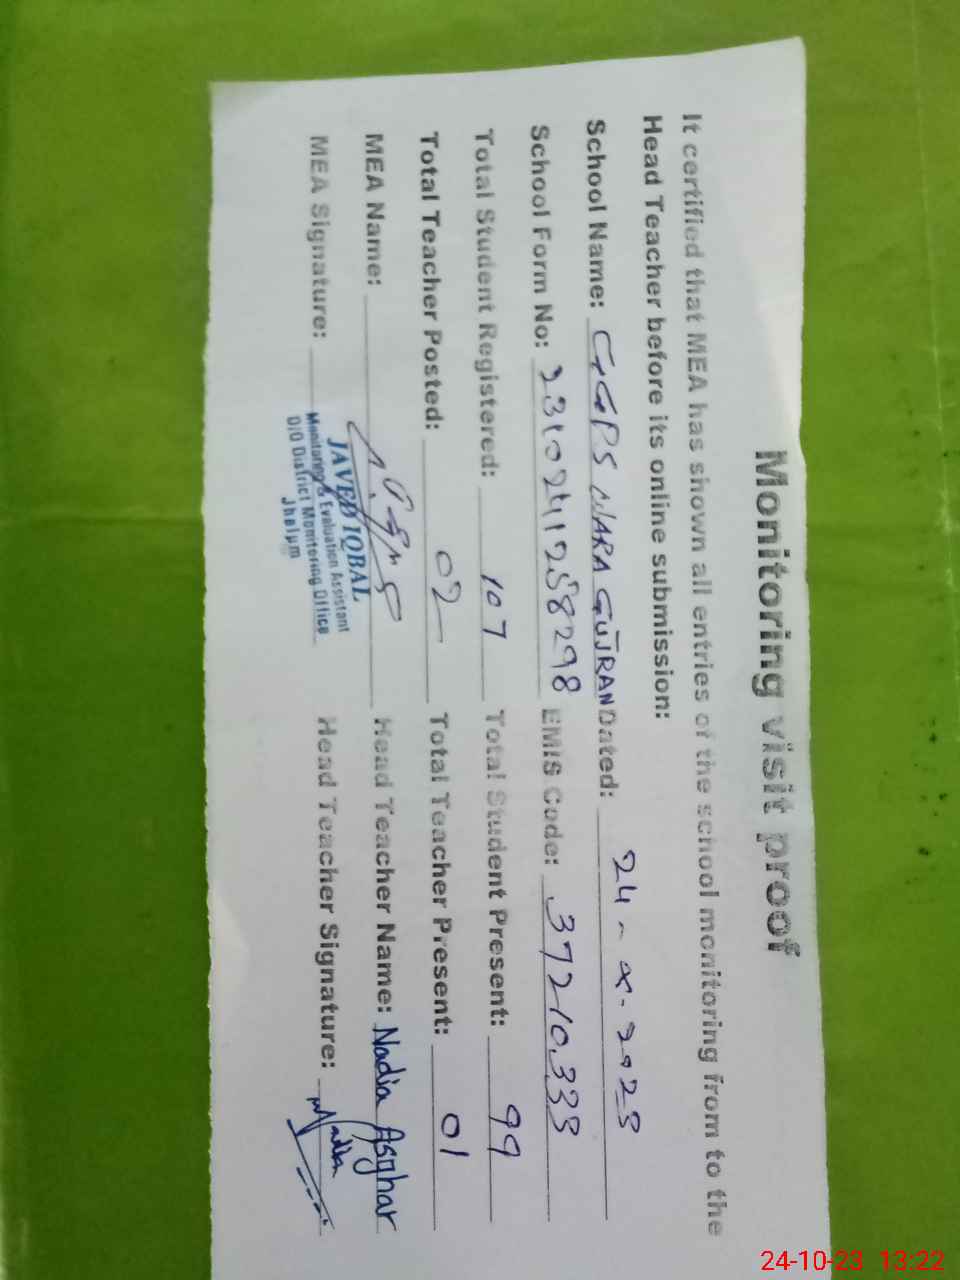 Monitoring visit proof
It certified that MEA has shown all entries of the school monitoring from to the
Head Teacher before its online submission:
School Name: GGPS NARA GUJRAN Dated: 24-x-2023
School Form No: 2310241258298 EMIS Code: 37210333
Total Student Registered: 107 Total Student Present: 99
Total Teacher Posted: 02 Total Teacher Present: 01
MEA Name: Head Teacher Name: Nadia Asghar
MEA Signature: Head Teacher Signature: Nadia
JAVED IQBAL
Monitoring & Evaluation Assistant
O/O District Monitoring Office
Jhelum
24-10-23 13:22